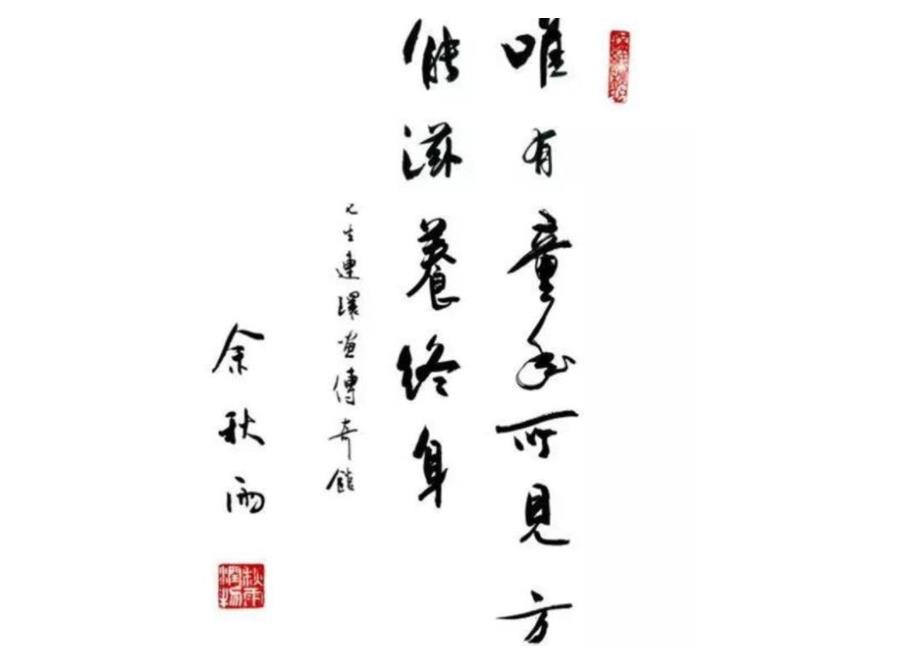 唯有童年所見方
能滋養終身
七生連環畫傳奇館
余秋雨